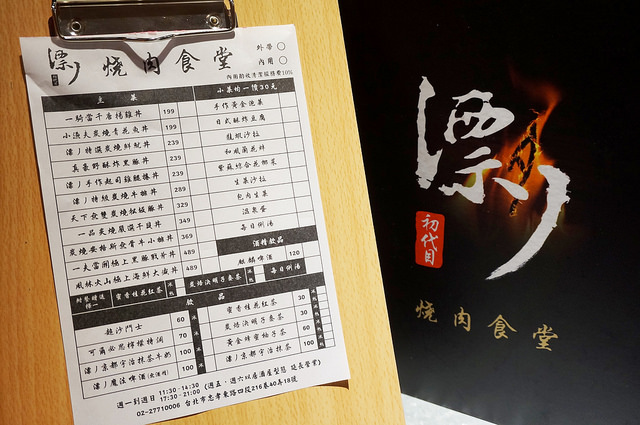 漂丿燒肉食堂
外帶
內用
內用酌收清潔服務費10%
主菜
一騎當千唐揚雞丼 199
小漁夫炭燒青花魚丼 199
漂丿特選炭燒鮭魷丼 239
真豪野酥炸里脈丼 239
漂丿手作起司雞腿捲丼 239
漂丿特級炭燒牛雜丼 289
天下無雙炭燒松阪豚丼 329
一品炭燒嚴選干貝丼 349
炭燒安格斯無骨牛小排丼 369
一夫當關極上里豚戰斧丼 489
風林火山極上海鮮大滿丼 489
小菜均一價30元
手作黃金泡菜
日式酥炸豆腐
龍蝦沙拉
和風蘭花蚌
紫蘇綜合花椰菜
生菜沙拉
包肉生菜
溫泉蛋
每日例湯
酒精飲品
麒麟啤酒 120
附餐精選擇一
蜜香桂花紅茶
炭焙決明子麥茶
每日例湯
飲品
超沙鬥士 60
可爾必思檸檬特調 70
漂丿京都宇治抹茶牛奶 100
漂丿魔法啤酒 100
蜜香桂花紅茶 30
炭焙決明子麥茶 30
黃金蜂蜜柚子茶 60
漂丿京都宇治抹茶 100
週一到週日 11:30-14:30 17:30-21:00 (週五、週六視居酒屋型態 延長營業)
02-27710006 台北市忠孝東路四段216巷40弄18號
漂丿
初代目
燒肉食堂